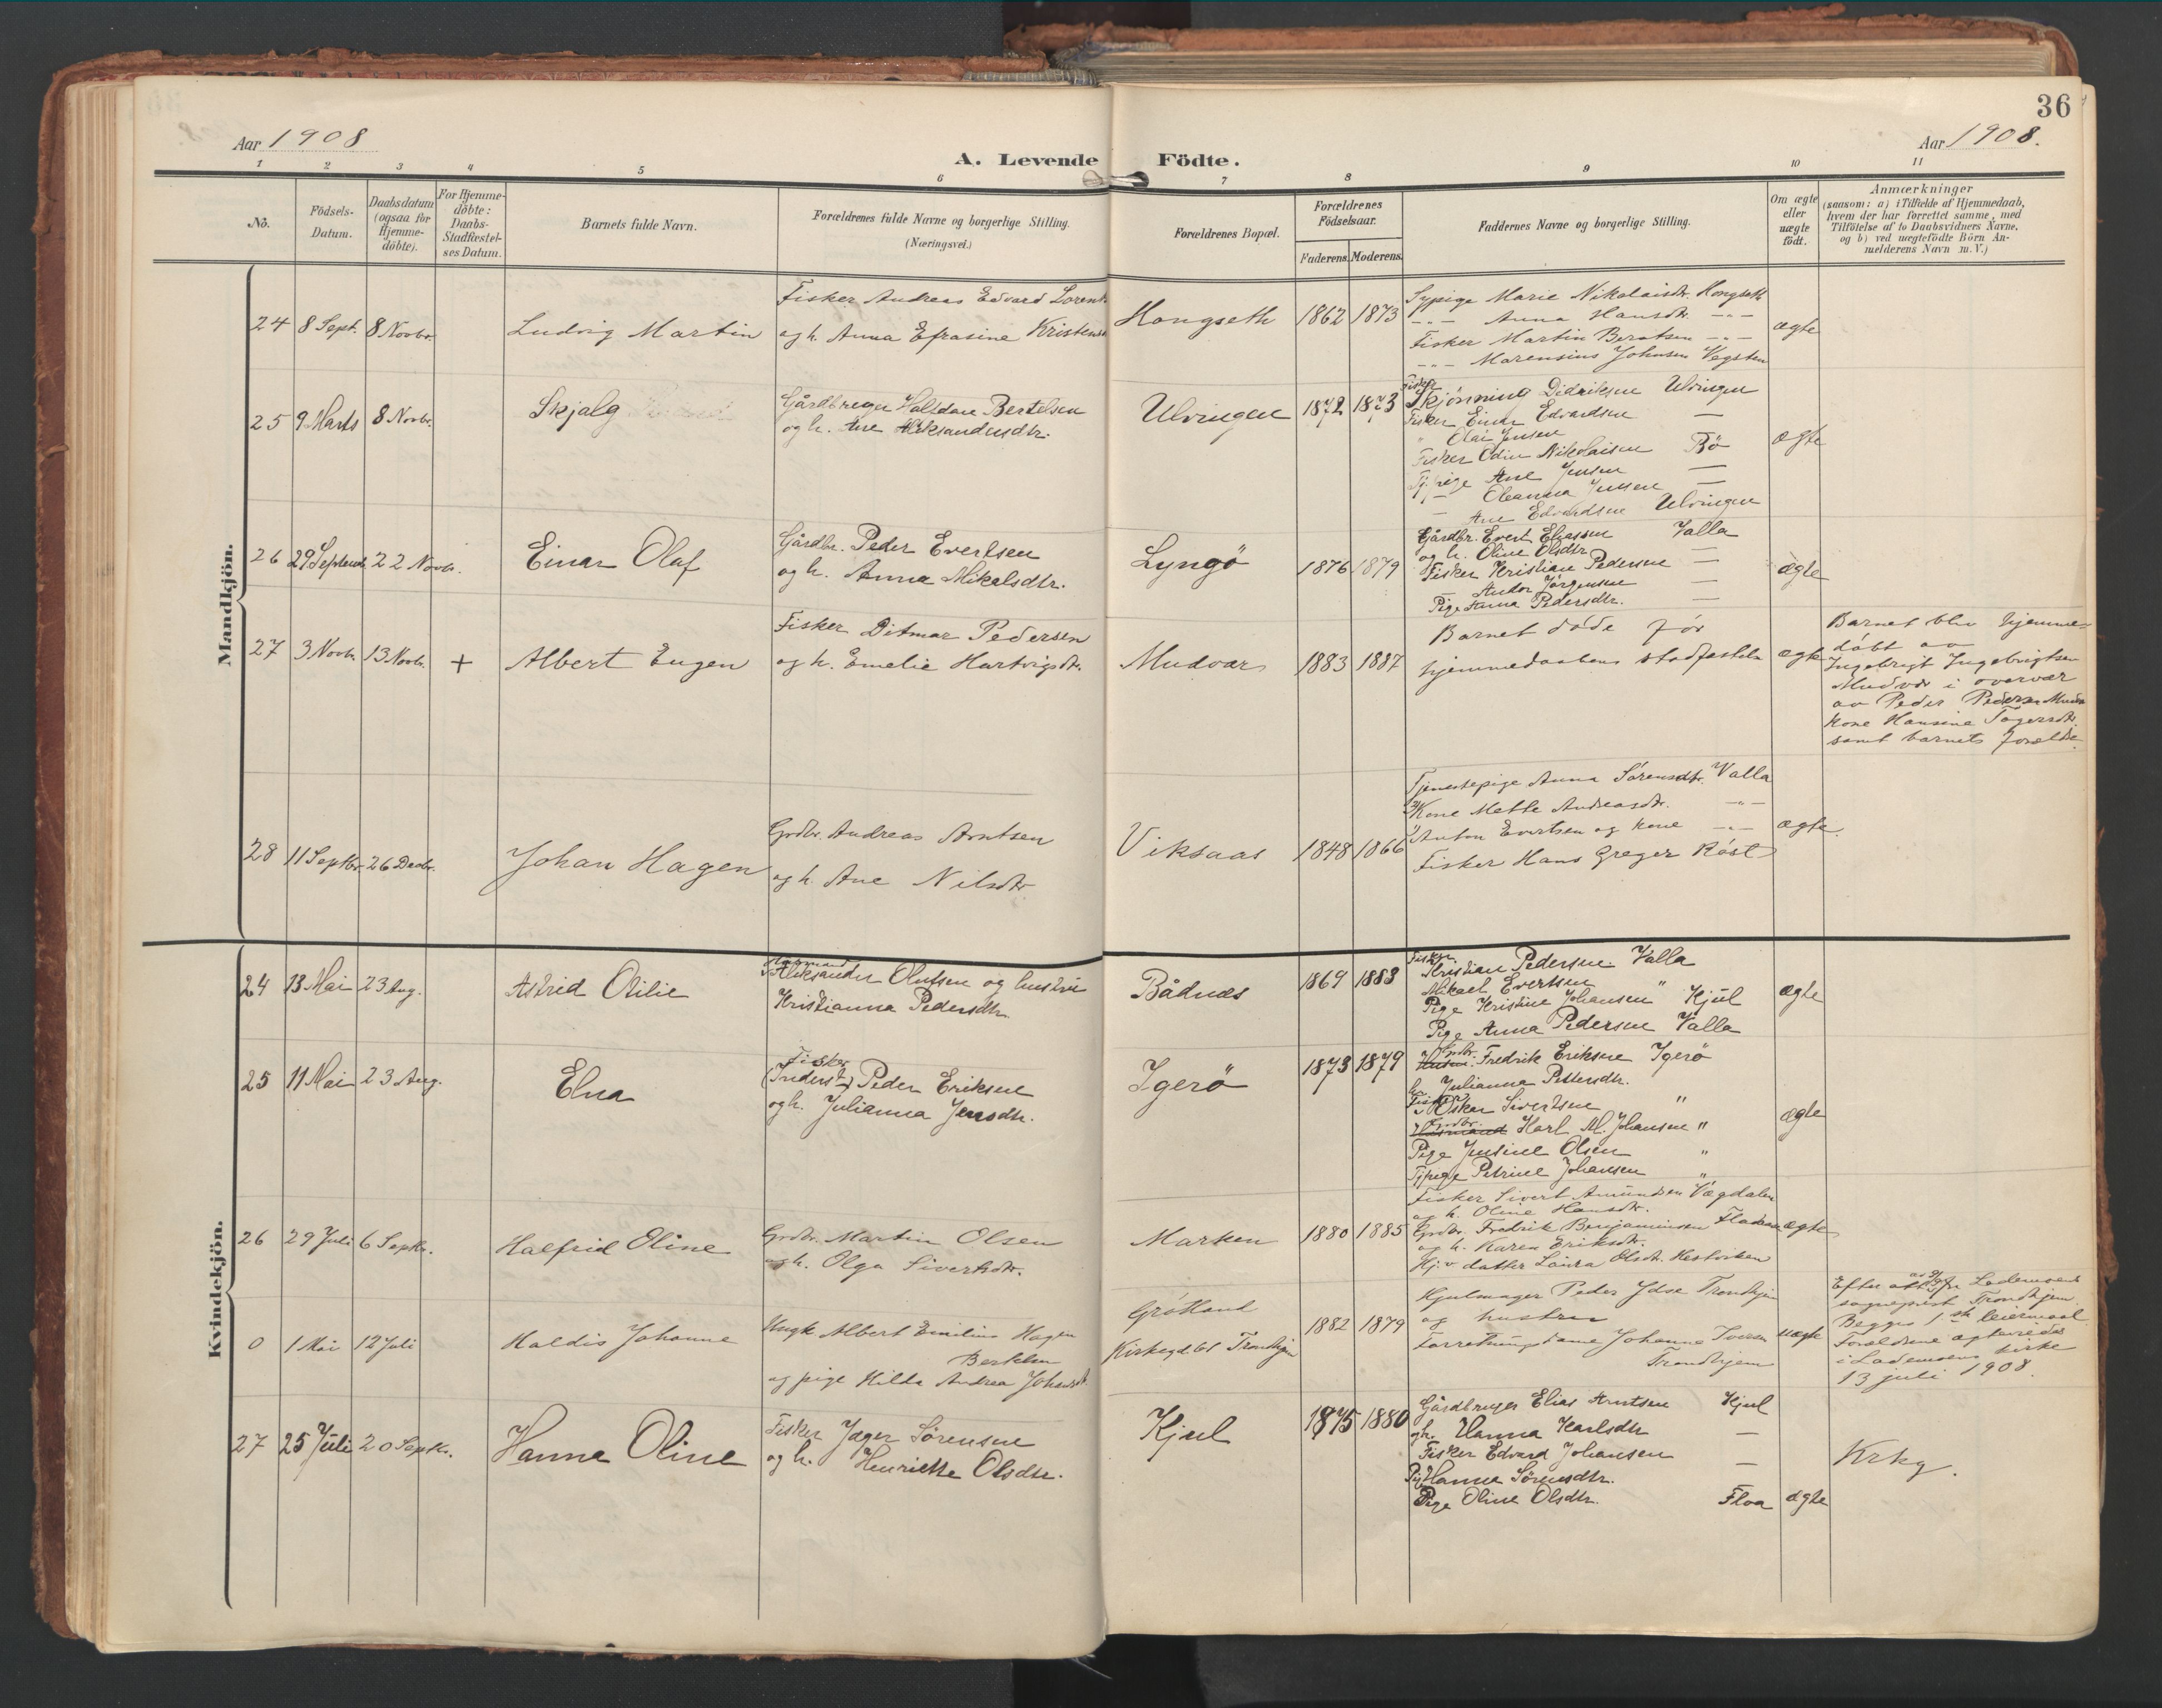 36
Aar 1908
Aar 1908.
A. Levende Födte.
1 2 3 4 5 6 7 8 9 10 11
No.
Födsels-
Datum.
Daabsdatum
(ogsaa for
Hjemme-
döbte).
For Hjemme-
döbte:
Daabs-
Stadfæstel-
ses Datum.
Barnets fulde Navn.
Forældrenes fulde Navne og borgerlige Stilling.
(Næringsvei.)
Forældrenes Bopæl.
Forældrenes
Födselsaar.
Faderens. Moderens.
Faddernes Navne og borgerlige Stilling.
Om ægte
eller
uægte
födt.
Anmærkninger
(saasom: a) i Tilfælde af Hjemmedaab,
hvem der har forrettet samme, med
Tilföielse af to Daabsvidners Navne,
og b) ved uægtefödte Börn An-
melderens Navn m.V.)
Mandkjön.
24 8 Sept. 8 Novbr.
Ludvig Martin
Fisker Andreas Edvard Lorent
og h. Anna Efrasine Kristens
Hongseth
1862 1873
Sypige Marie Nikolaisdr. Hongseth
-"- Anna Hansdr. -"-
Fisker Martin Berntsen -"-
-"- Marensius Johnsen Vegsten
ægte
25 9 Marts 8 Novbr.
Skjalg
Gårdbruger Halfdan Bertelsen
og h. Ane Aleksandersdtr.
Ulvingen
1872 1873
Fisker
Skjönning Didriksen Ulvingen
Fisker Einar Edvardsen —
" Olai Jensen
Fisker Odin Nikolaisen Bö
Tj.pige Ane Jensen —
— Oleanna Jensen —
— Ane Edvardsen Ulvingen
ægte
26 29 Septemb. 22 Novbr.
Einar Olaf
Gårdbr. Peder Evertsen
og h. Anna Mikalsdtr.
Lyngö
1876 1879
Gårdbr. Evert Eliassen Valla
og h. Oline Olsdtr. —
Fisker Kristian Pedersen —
Andor Jörgensen
Pige Anna Pedersdtr. —
ægte
27 3 Novbr. 13 Novbr. +
Albert Eugen
Fisker Ditmar Pedersen
og h. Emelie Hartvigsdtr.
Mudvær
1883 1887
Barnet döde för
hjemmedaabens stadfæstelse
ægte
Barnet blev hjemme-
döbt av
Ingebrigt Ingebrigtsen
Mudvær i overvær
av Peder Pedersen Mudv
kone Hansine
samt barnets forældre.
28 11 Septbr. 26 Decbr.
Johan Hagen
Grdbr. Andreas Arntsen
og h. Ane Nilsdtr.
Viksaas
1848 1866
Tjenestepige Anna Sörensdtr. Valla
Kone Mette Andreasdtr. -"-
Anton Evertsen og kone -"-
Fisker Hans Greger Röst
ægte.
Kvindekjön.
24 13 Mai 23 Aug.
Astrid Otilie
Aleksander Olufsen og hustru
Kristianna Pedersdtr.
Bådnæs
1869 1883
Fisker
Kristian Pedersen. Valla
Mikael Evertsen "
Pige Kristine Johansen Kjul
Pige Anna Pedersen Valla
ægte
25 11 Mai 23 Aug.
Elna
Fisker
(Inderst) Peder Eriksen
og h. Julianna Jensdtr.
Igerö
1873 1879
Grdbr. Fredrik Eriksen Igerö
h. Julianna Pettersdtr.
Fisker
Oskar Sivertsen "
Grdbr.
Husmand Karl M. Johansen "
Pige Jensine Olsen "
Tjpige Petrine Johansen "
ægte
26 29 Juli 6 Septbr.
Halfrid Oline
Grdbr. Martin Olsen
og h. Olga Sivertsdtr.
Marken
1880 1885
Fisker Sivert Amundsen Vægdalen
og h. Oline Hansdtr.
Grdbr. Fredrik Benjaminsen
og h. Karen Eriksdtr.
Hj.v. datter Laura Olsdtr. Hestviken
ægte
0 1 Mai 12 Juli
Haldis Johanne
Ungk Albert Emilius Hagen
Bertelsen
og pige Hilda Andrea Johansdt
Grötland
Kirkegd 61 Trondhjem
1882 1879
Hjulmager Peder Ydse Trondhjem
og hustru
Forretningsdame Johanna Iversen
Trondhjem
uægte
Efter att. av 9/9 fr Lademoens
sogneprest Trondhjem.
Begges 1ste leiermaal.
Forældrene ægteviede
i Lademoens kirke
13 juli 1908.
27 25 Juli 20 Septbr.
Hanna Oline
Fisker Jæger Sörensen
og h. Henriette Olsdtr.
Kjul
1875 1880
Gårdbruger Elias Arntsen Kjul
og h. Hanna Karlsdtr —
Fisker Edvard Johansen
Pig Hanna Sörensdtr. —
Pige Oline Olsdtr. Floa
ægte
Krkg.